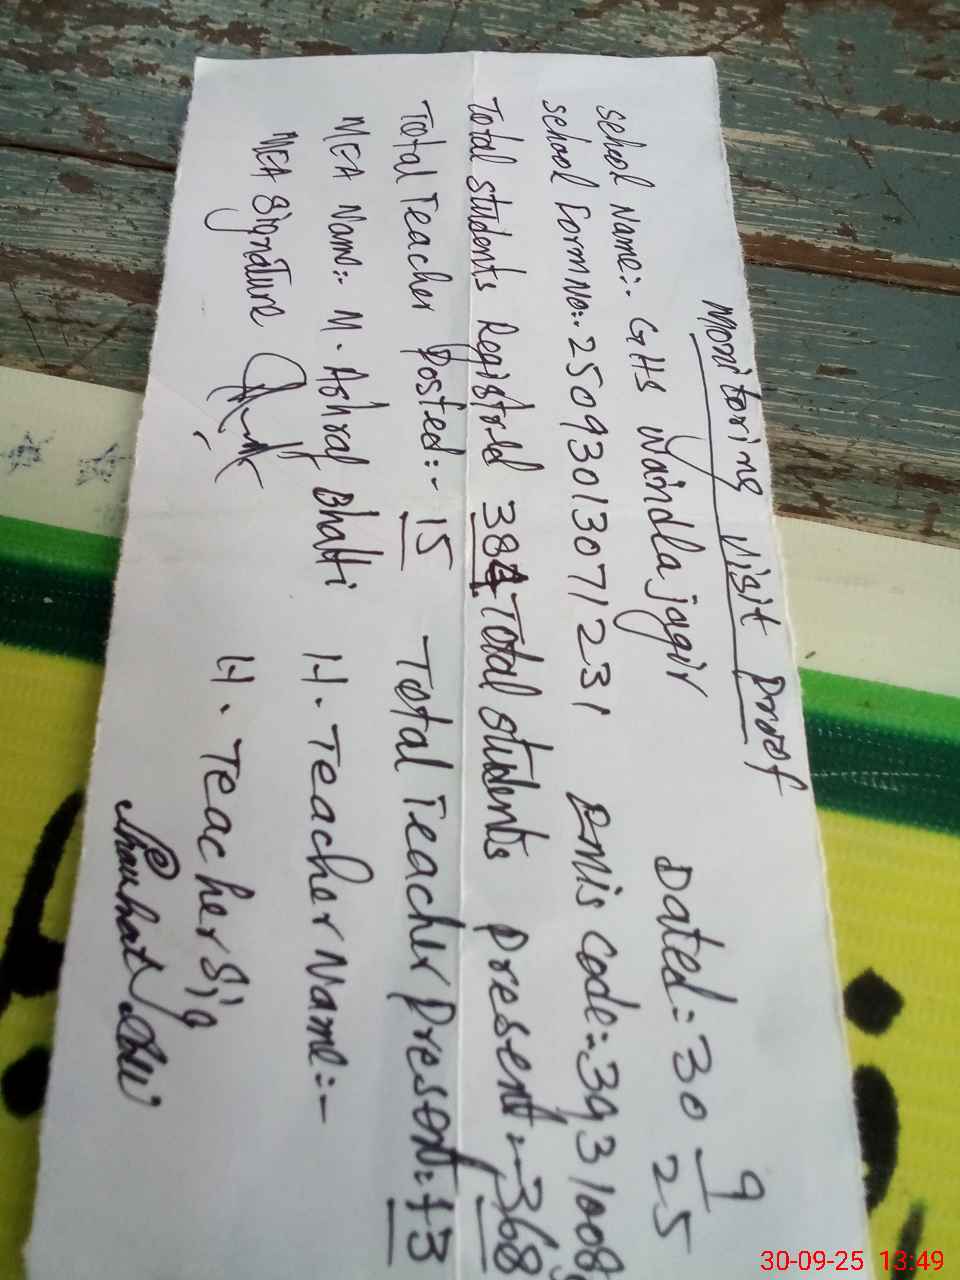 Monitoring Visit Proof
School Name:- GHS Waindla jagir Dated = 30 9 25
School Form No:- 2509301307 1231 Emis Code:- 39310089
Total Students Registred 384 Total Students Present:- 368
Total Teacher Posted:- 15 Total Teacher Present:- 13
MEA Name:- M. Ashraf Bhatti H. Teacher Name:-
MEA Signature H. Teacher Sig
30-09-25 13:49